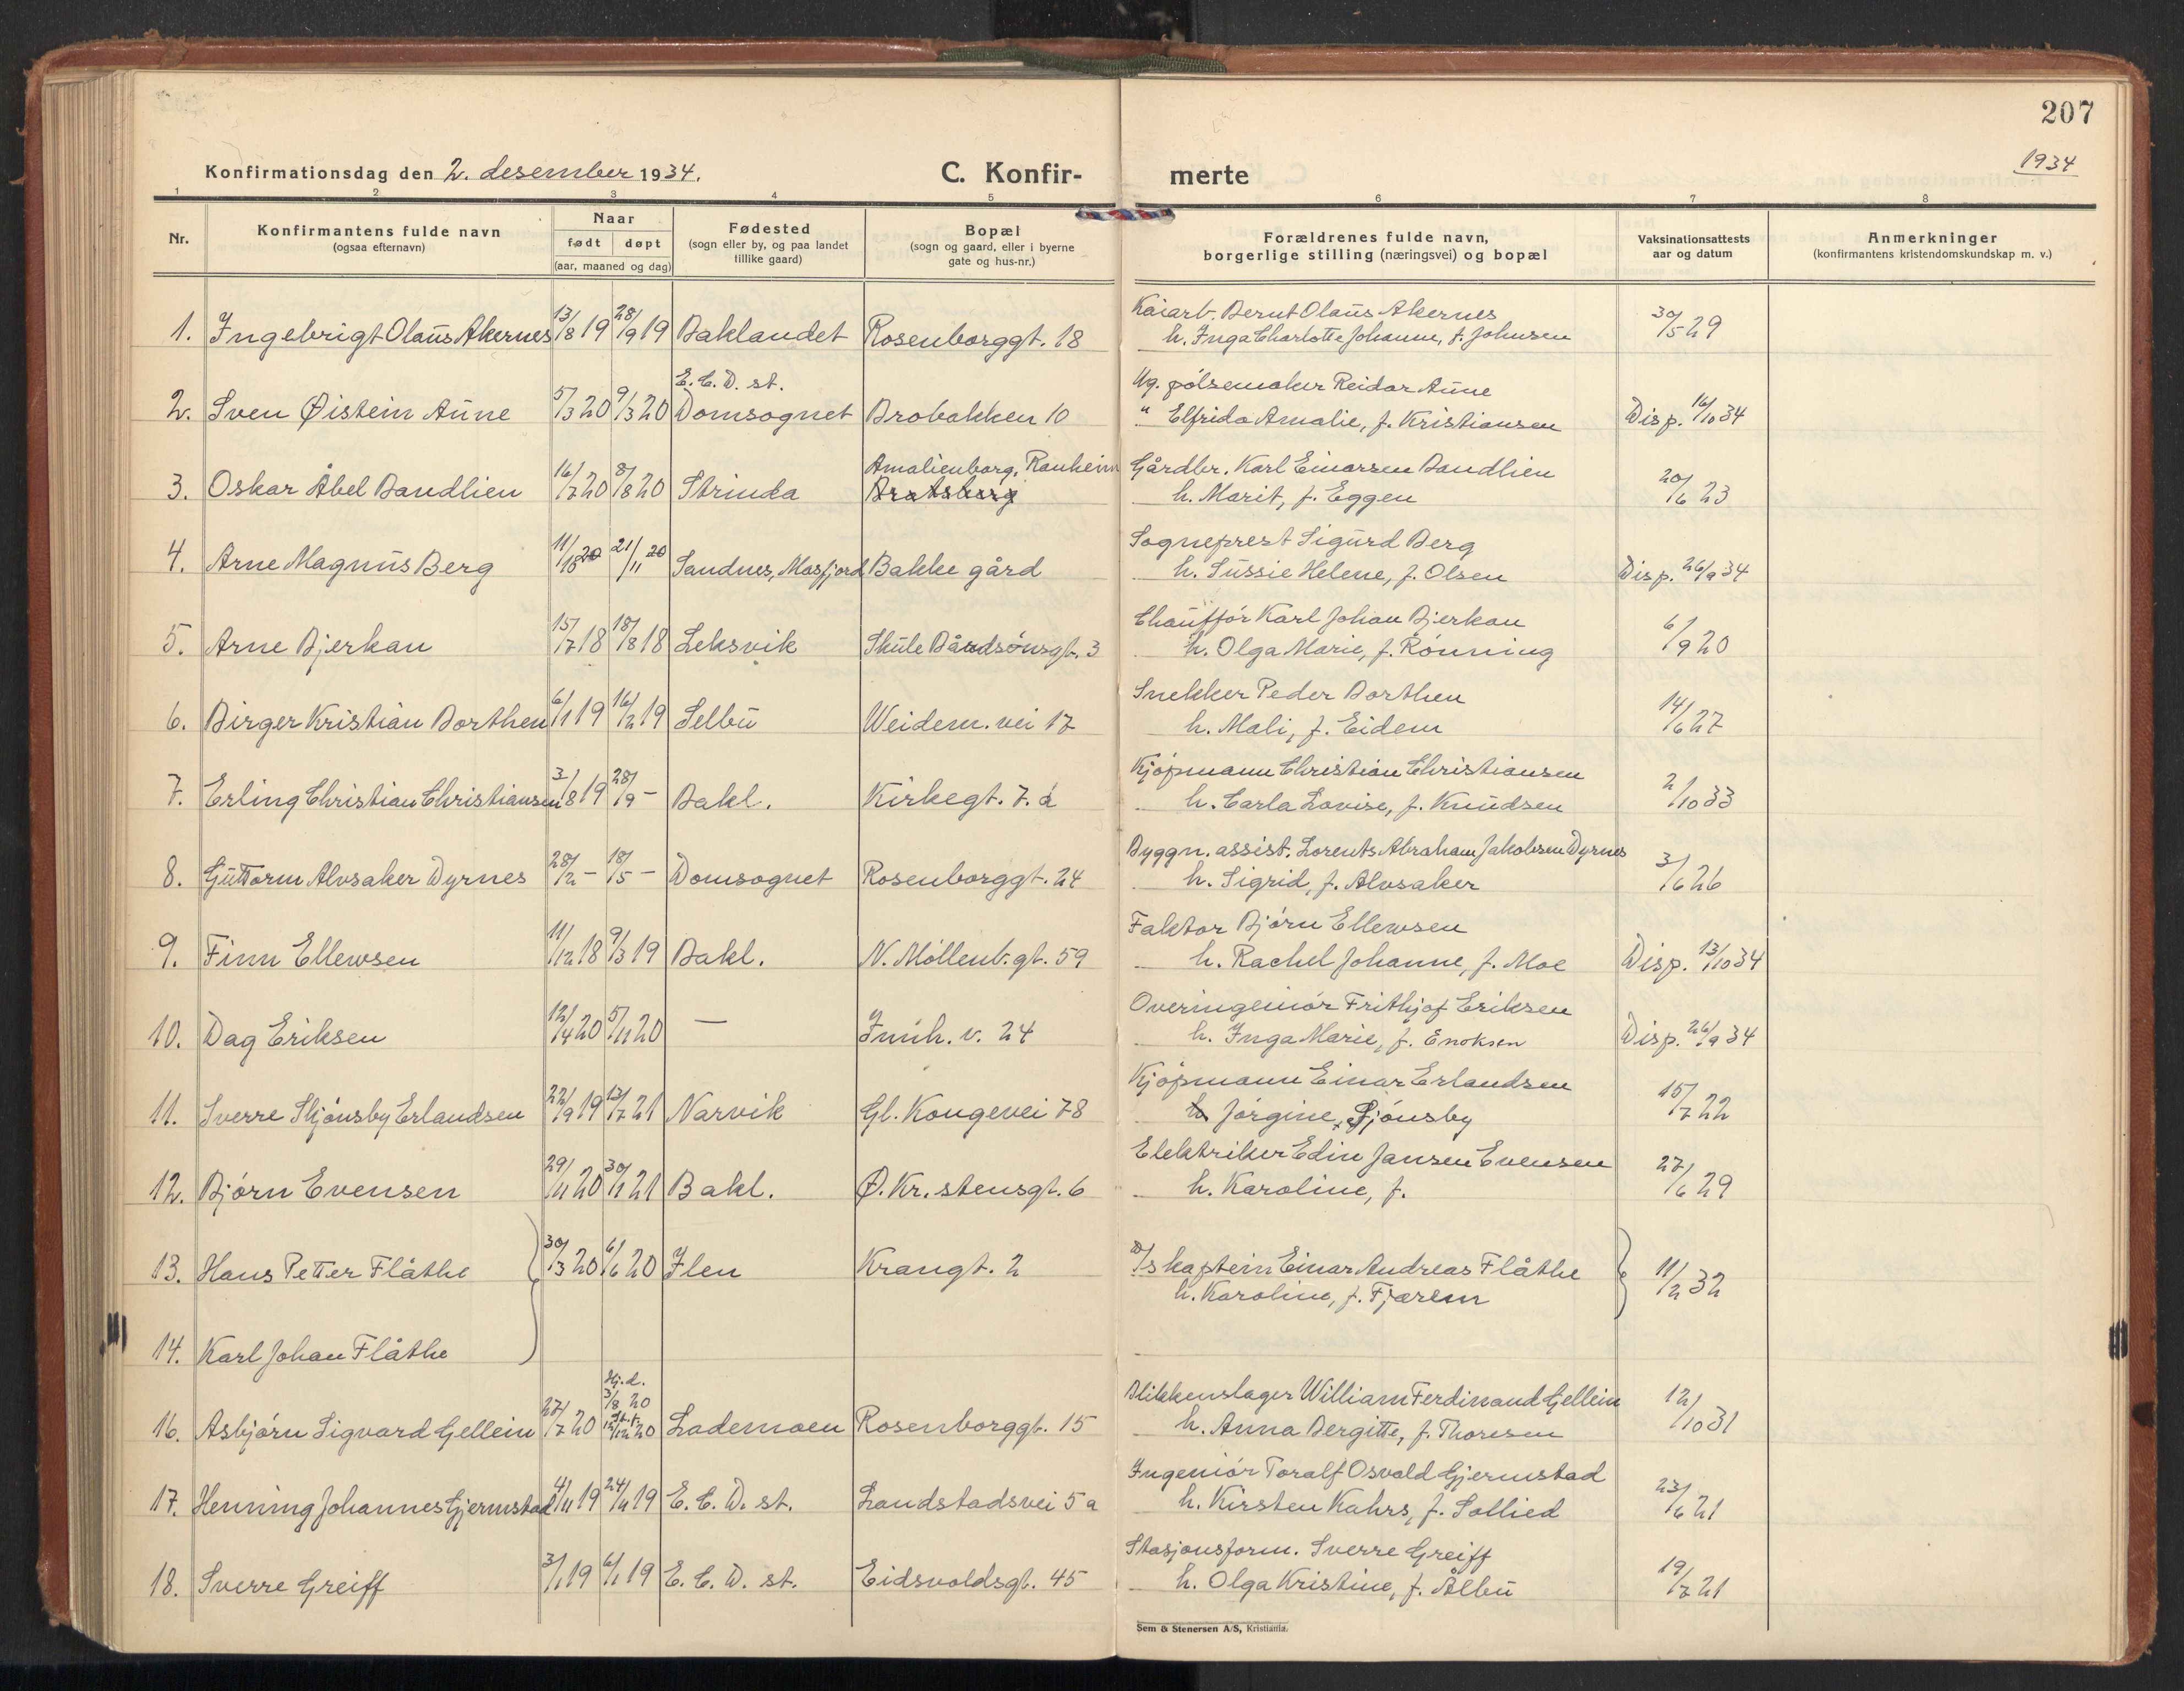 207
1934
Konfirmationsdag den 2. desember 1934.
C. Konfir-
merte
1 2 3 4 5 6 7 8
Nr.
Konfirmantens fulde navn
(ogsaa efternavn)
Naar
født døpt
(aar, maaned og dag)
Fødested
(sogn eller by, og paa landet
tillike gaard)
Bopæl
(sogn og gaard, eller i byerne
gate og hus-nr.)
Forældrenes fulde navn,
borgerlige stilling (næringsvei) og bopæl
Vaksinationsattests
aar og datum
Anmerkninger
(konfirmantens kristendomskundskap m. v.)
Kaiarb. Bernt Olaus Akernes
1. Ingebrigt Olaus Akernes 13/8 19 28/9 19 Baklandet Rosenborggt. 18 h. Inga Charlotte Johanne, f. Johnsen 30/5 29
E. C. D. st. Ug. pølsemaker Reidar Aune
2. Sven Øistein Aune 5/3 20 9/3 20 Domsognet Brobakken 10 " Elfrida Amalie, f. Kristiansen Disp. 16/10 34
Amalienborg, Ranheim Gårdbr. Karl Einarsen Bandlien
3. Oskar Åbel Bandlien 16/7 20 8/8 20 Strinda Bratsberg h. Marit, f. Eggen 20/6 23
Sogneprest Sigurd Berg
4. Arne Magnus Berg 11/10 20 21/11 20 Sandnes, Masfjord Bakke gård h. Sussie Helene, f. Olsen Disp. 26/9 34
Chauffør Karl Johan Bjerkan
5. Arne Bjerkan 15/7 18 18/8 18 Leksvik Skule Bårdsønsgt. 3 h. Olga Marie, f. Rønning 6/9 20
Snekker Peder Borthen
6. Birger Kristian Borthen 6/1 19 16/2 19 Selbu Weidem. vei 17 h. Mali, f. Eidem 14/6 27
Kjøpmann Christian Christiansen
7. Erling Christian Christiansen 3/8 19 28/9 - Bakl. Kirkegt. 7. a h. Carla Lovise, f. Knudsen 2/10 33
Byggn. assist. Lorents Abraham Jakobsen Dyrnes
8. Guttorm Alvsaker Dyrnes 28/2 - 18/5 - Domsognet Rosenborggt. 24 h. Sigrid, f. Alvsaker 3/6 26
Faktor Bjørn Ellewsen
9. Finn Ellewsen 11/12 18 9/3 19 Bakl. N. Møllenb. gt. 59 h. Rachel Johanne, f. Moe Disp. 13/10 34
Overingeniør Frithjof Eriksen
10. Dag Eriksen 12/4 20 5/11 20 — h. Inga Marie, f. Enoksen Disp. 26/9 34
v. 24
Kjøpmann Einar Erlandsen
11. Sverre Skjønsby Erlandsen 22/9 19 13/7 21 Narvik Gl. Kongevei 78 h. Jørgine, Sjønsby 15/7 22
Elektriker Edin Jansen Evensen
12. Bjørn Evensen 29/11 20 30/1 21 Bakl. Ø. Kr. stensgt. 6 h. Karoline, f. 27/6 29
13. Hans Petter Flåthe 30/3 20 6/6 20 Ilen Krangt. 2 D/s kaptein Einar Andreas Flåthe 11/2 32
h. Karoline, f. Fjærem
14. Karl Johan Flåthe
Hj. d.
3/8 20 Blikkenslager William Ferdinand Gellein
16. Asbjørn Sigvard Gellein 27/7 20 st. f. 12/12 20 Lademoen Rosenborggt. 15 h. Anna Bergitte, f. Thoresen 12/10 31
Ingeniør Toralf Osvald Gjermstad
17. Henning Johannes Gjermstad 4/11 19 24/11 19 E. C. D. st. Landstadsvei 5 a h. Kirsten Kahrs, f. Sollied 23/6 21
Stasjonsform. Sverre Greiff
18. Sverre Greiff 3/1 19 6/1 19 E. C. D. st. Eidsvoldsgt. 45 h. Olga Kristine, f. Ålbu 19/7 21
Sem & Stenersen A/S, Kristiania.